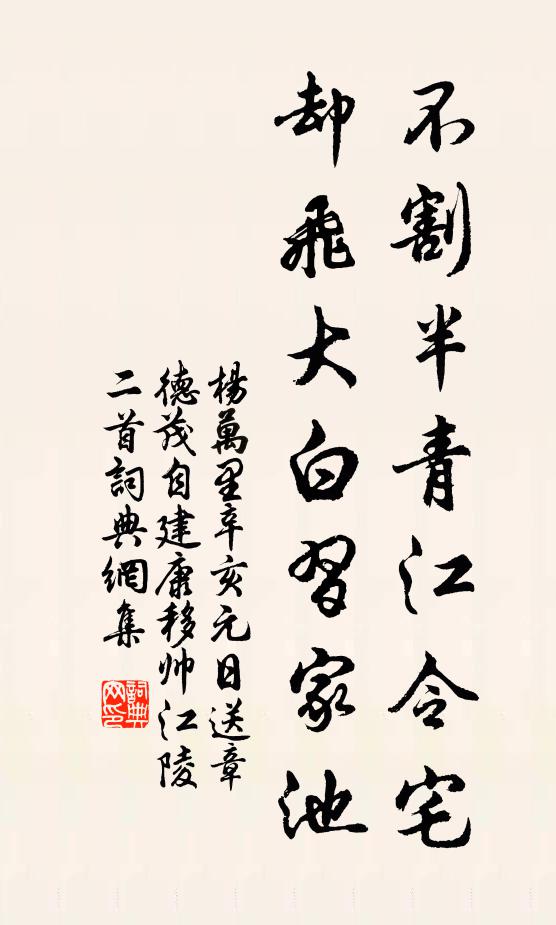 不割半青江令宅
却飛大白習家池
楊萬里辛亥元日送章
德茂自建康移帅江陵
二首詞典網集
詞典
网印